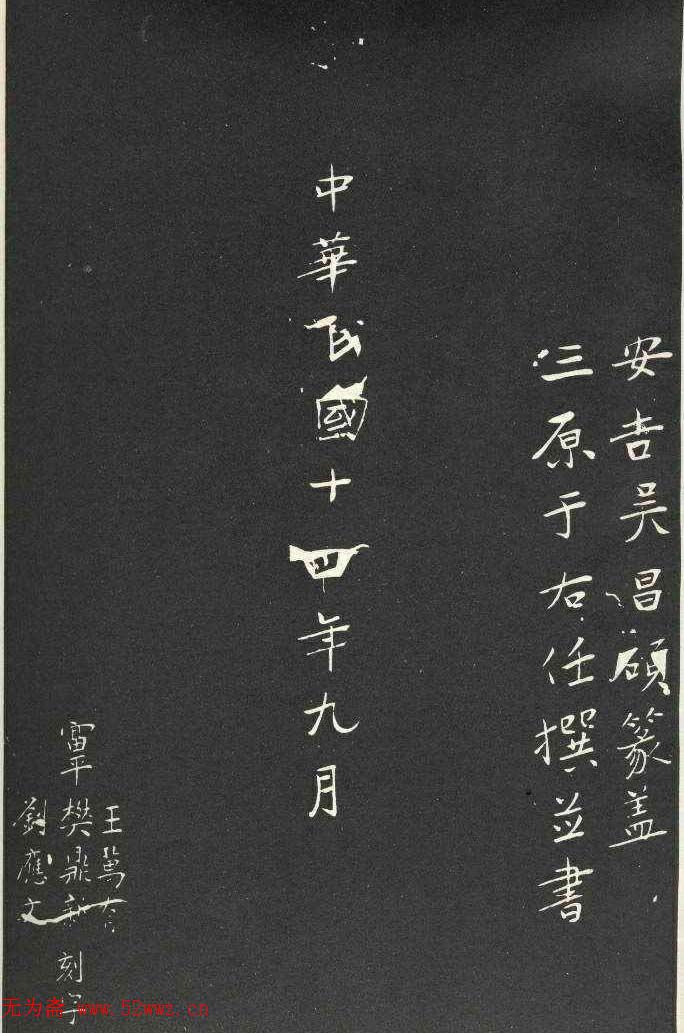 安吉吳昌碩篆盖
三原于右任撰並書
中華民國十四年九月
王萬
富平樊鼎新刻字
劉應文
无为斋 www.52wwz.cn